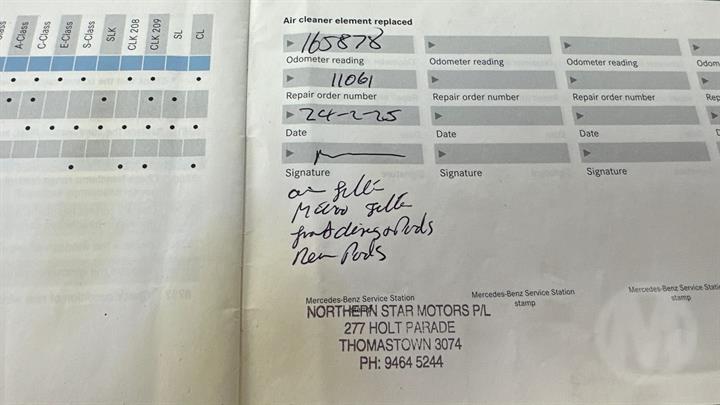 A-Class
C-Class
E-Class
S-Class
SLK
CLK 208
CLK 209
SL
CL
Air cleaner element replaced
165878
Odometer reading
Odometer reading
Odometer reading
Odom
11061
Repair order number
Repair order number
Repair order number
Rep
24-2-25
Date
Date
Date
D
Signature
Signature
Signature
air filter
Micro filter
front discs & Pads
Rear Pads
Mercedes-Benz Service Station
Mercedes-Benz Service Station
stamp
Mercedes-Benz Service Station
stamp
NORTHERN STAR MOTORS P/L
277 HOLT PARADE
THOMASTOWN 3074
PH: 9464 5244